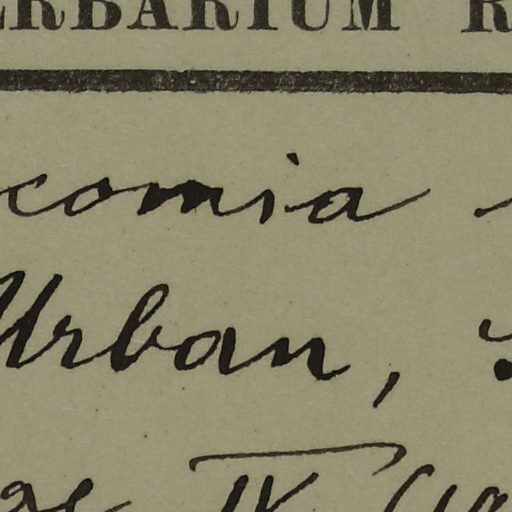 ERBARIUM R
comia
Urban,
IV